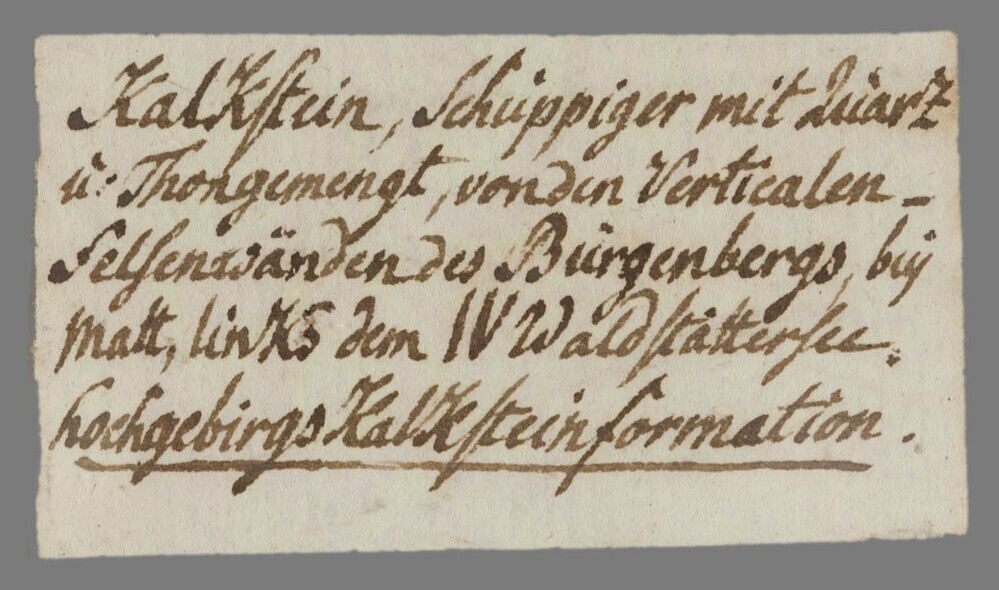 KalKstein, Schuppiger mit Quarz
u: Thongemengt, von den Verticalen-
Felsenwänden des Bürgenbergs, bey
Matt, linKs dem IV Waldstättersee.
hochgebirgs KalKsteinformation.